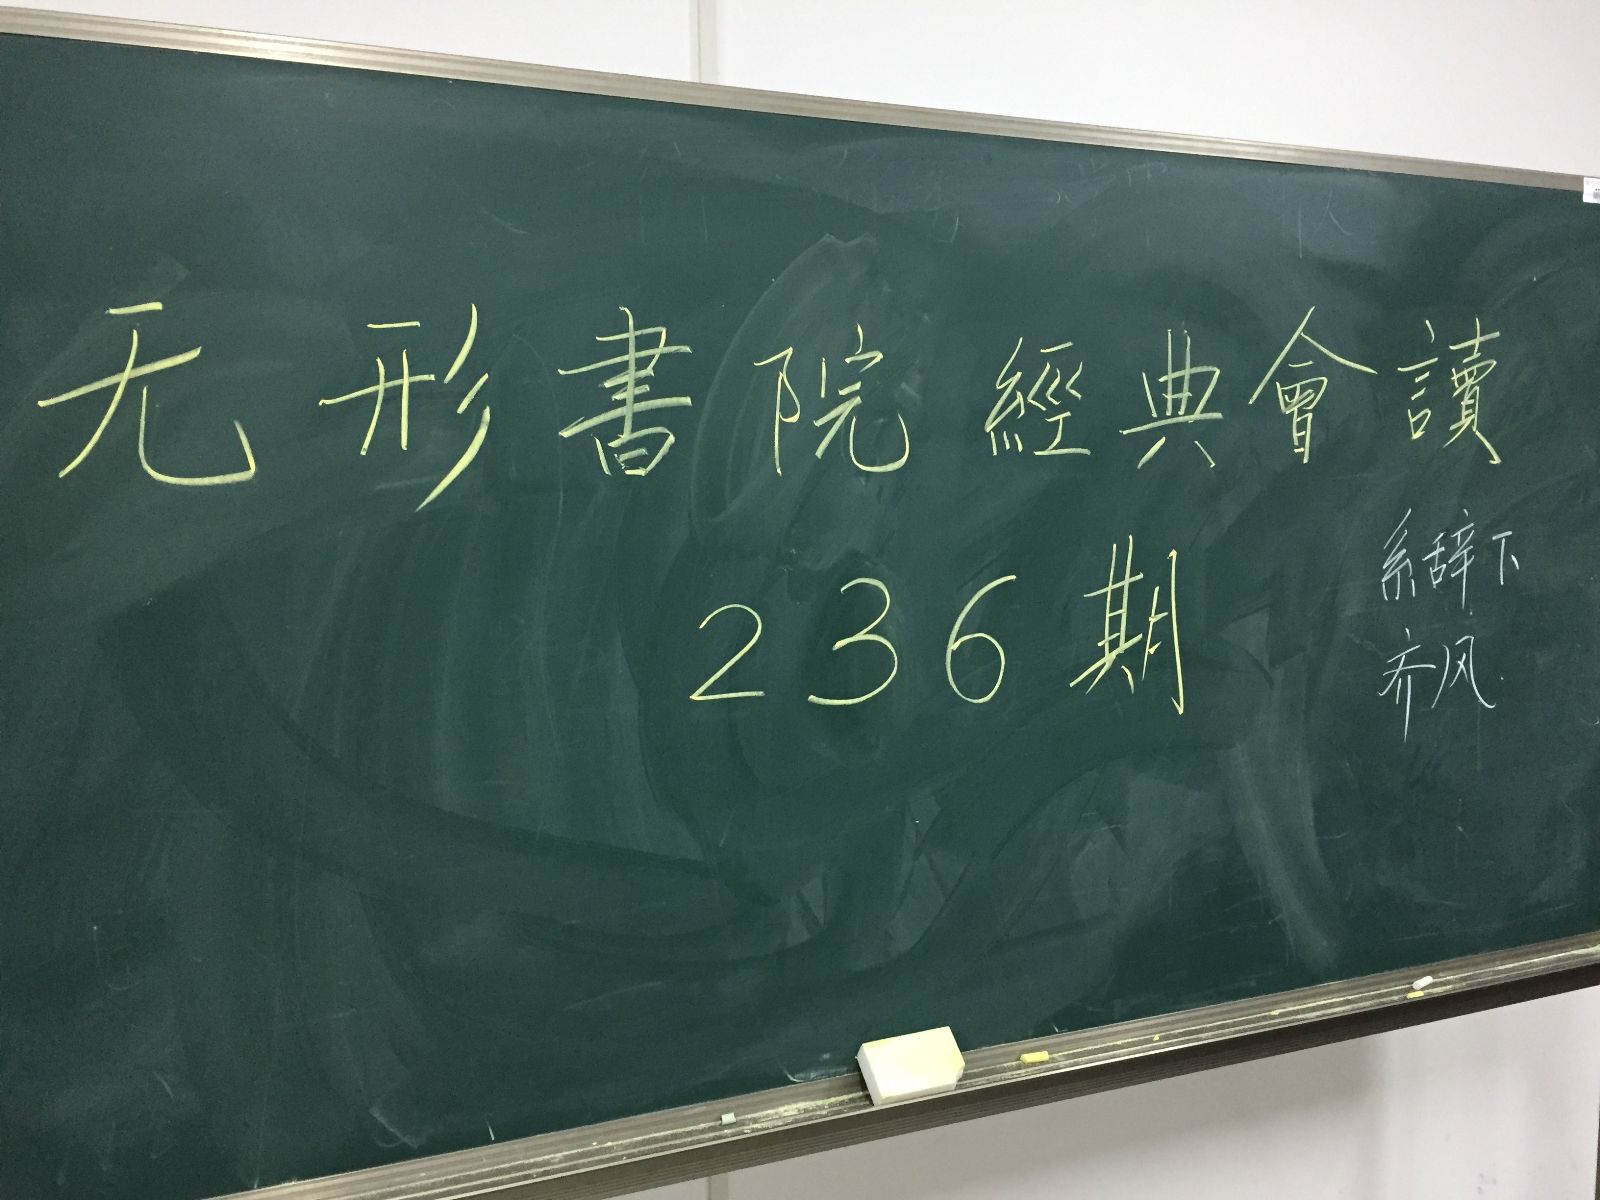 无形書院經典會讀
236期
系辞下
齐风